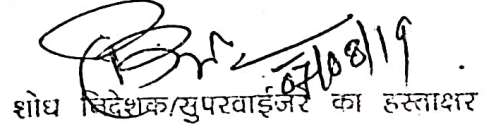 07/08/19
शोध निदेशक/सुपरवाईजर का हस्ताक्षर